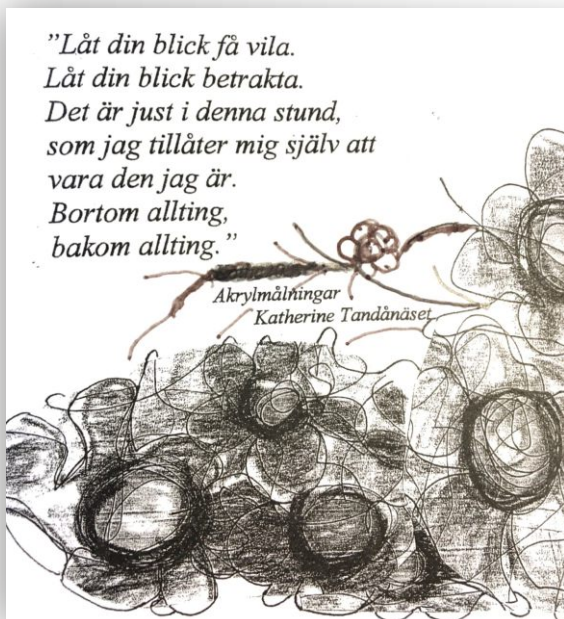 ”Låt din blick få vila.
Låt din blick betrakta.
Det är just i denna stund,
som jag tillåter mig själv att
vara den jag är.
Bortom allting,
bakom allting.”
Akrylmålningar
Katherine Tandånäset